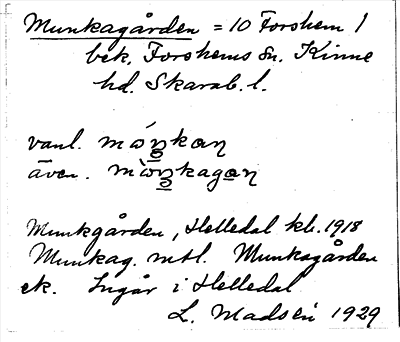 Munkagården = 10 Forshem 1
bek. Forshems sn. Kinne
hd. Skarab. l.
vanl. mɷ́ŋkaƞ
även. mɷ̀ŋkagaƞ
Munkgården, Helledal kb. 1918
Munkag. mtl. Munkagården
ek. Ingår i Helledal
L. Madsén 1929